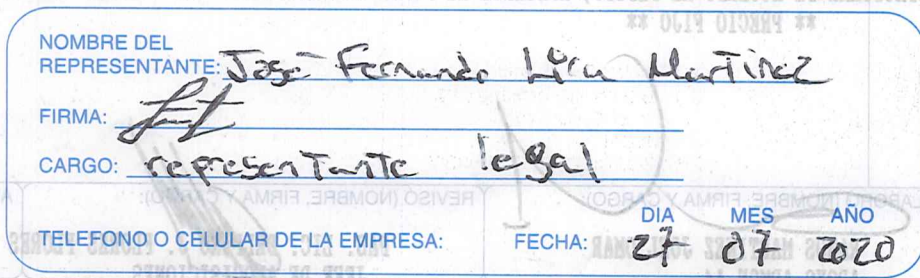 NOMBRE DEL
REPRESENTANTE: José Fernando Lira Martinez
FIRMA:
CARGO: representante legal
DIA MES AÑO
TELEFONO O CELULAR DE LA EMPRESA: FECHA: 27 07 2020